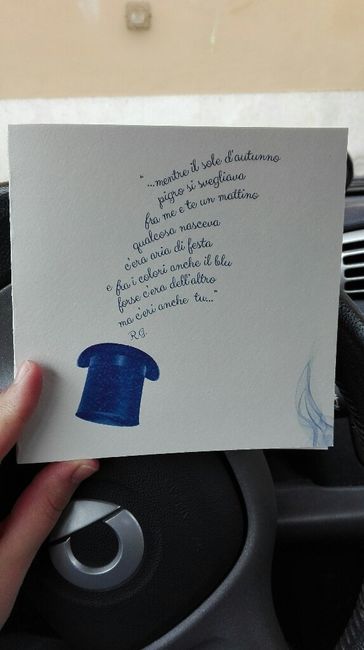 "...mentre il sole d'autunno
pigro si svegliava
fra me e te un mattino
qualcosa nasceva
c'era aria di festa
e fra i colori anche il blu
forse c'era dell'altro
ma c'eri anche tu..."
R.G.